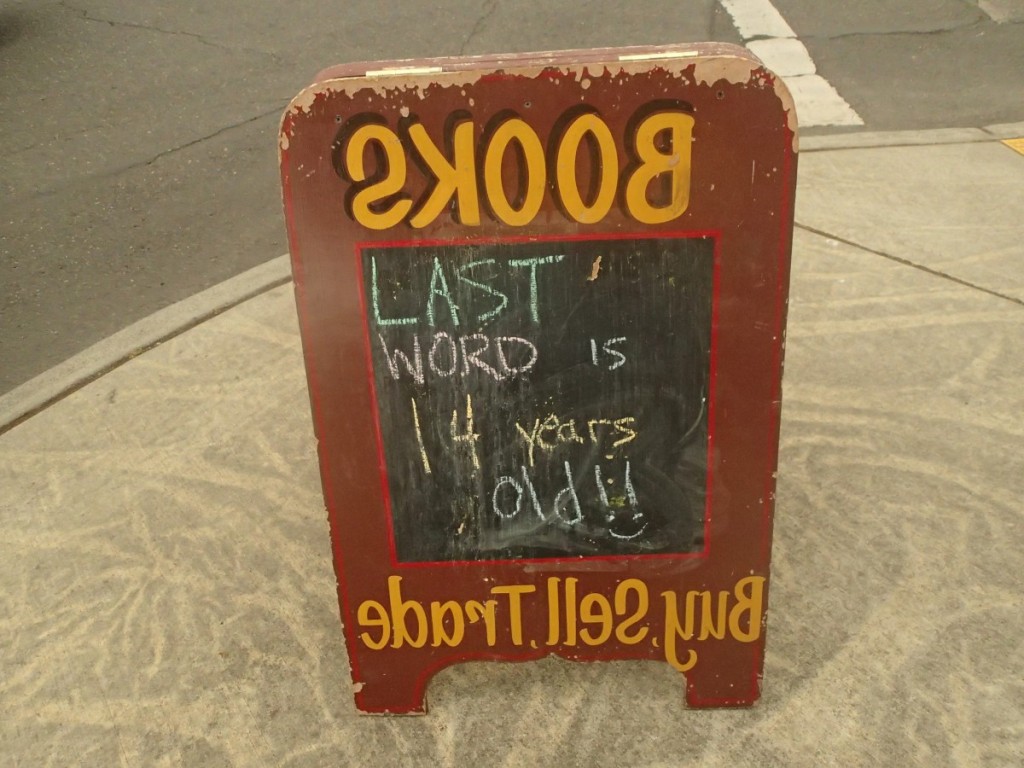 BOOKS
LAST
WORD is
14 years
old!!
Buy, Sell, Trade